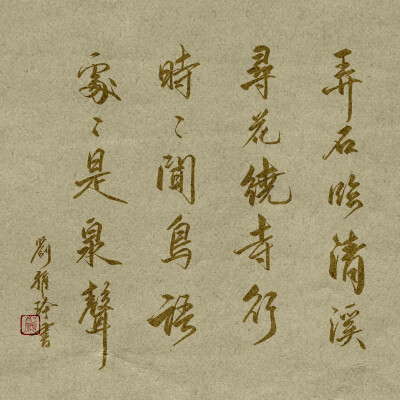 弄石临清溪
尋花繞寺行
時〻聞鳥語
處〻是泉聲
劉雅玲書